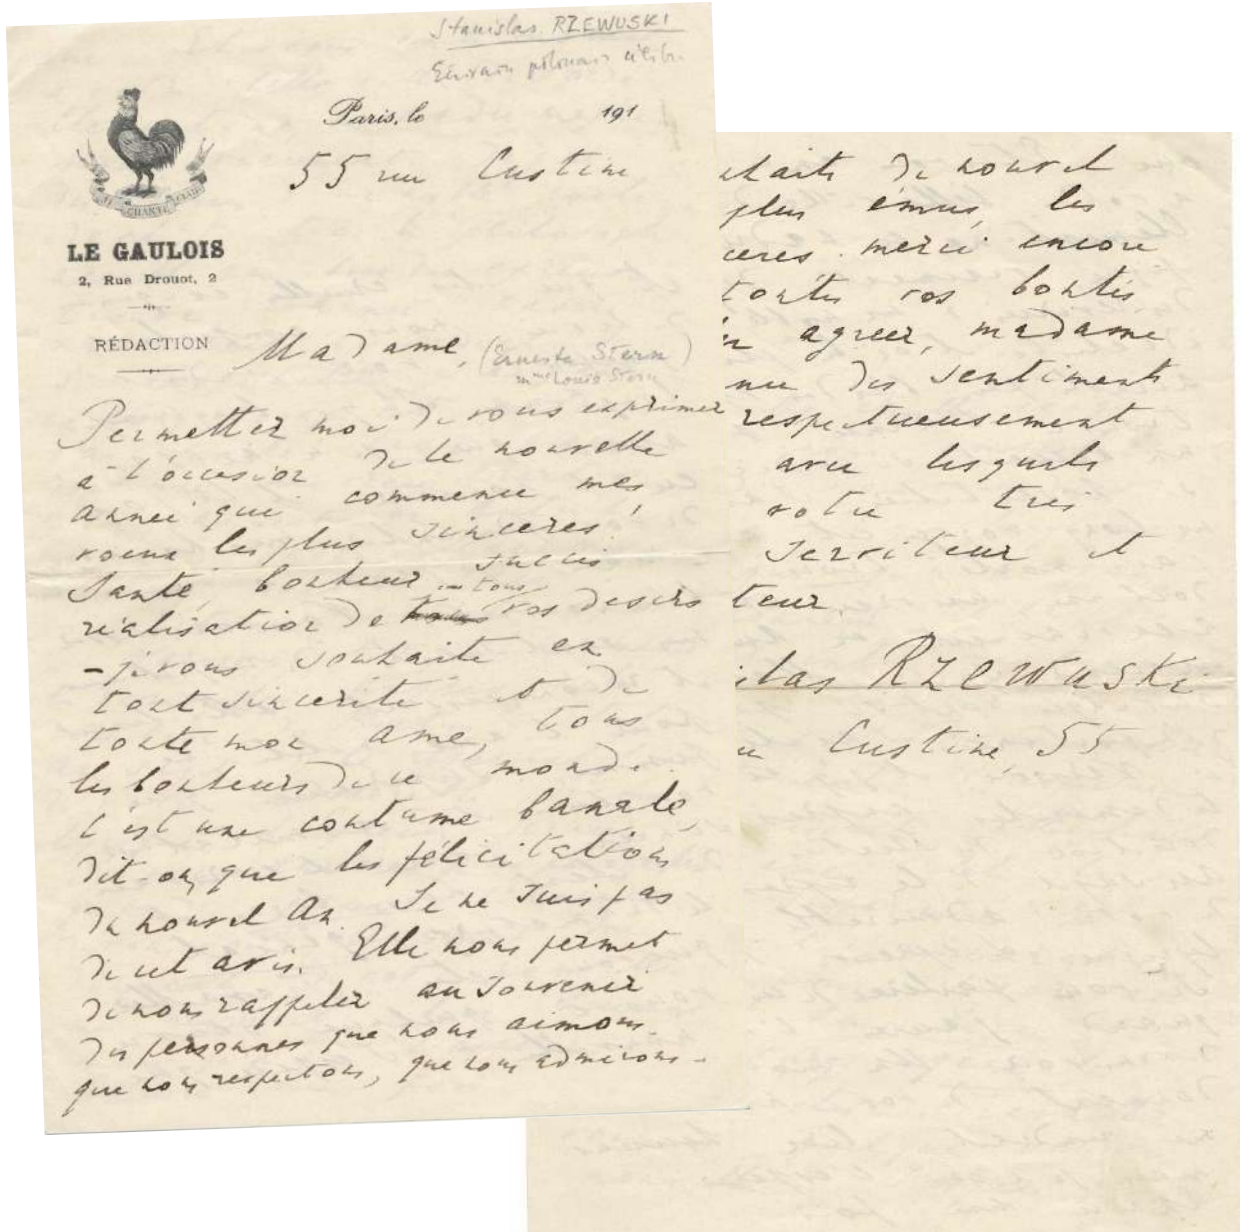 Stanislas RZEWUSKI
Écrivain polonais célèbre
Paris, le 191
55 rue Custine
CHANTE CLAIR
LE GAULOIS
2, Rue Drouot, 2
RÉDACTION
Madame, (Ernesta Stern)
Mme Louis Stern
Permettez moi de vous exprimer
à l'occasion de la nouvelle
année qui commence mes
voeux les plus sincères!
Santé, bonheur succès
tous
réalisation de vos desirs
- je vous souhaite en
tout sincerité et de
toute mon ame, tous
les bonheurs de ce monde.
C'est une coutume banale,
dit-on, que les félicitations
du nouvel An. Je ne suis pas
de cet avis. Elle nous permet
de nous rappeler au souvenir
des personnes que nous aimons.
que nous respectons, que nous admirons -
uhaits de nouvel
plus émus, les
ceres. merci encore
toutes vos bontés
agreer, madame
nce des sentiments
respectueusement
avec lesquels
votre très
serviteur et
teur.
slas RZEWUSKi
Custine, 55